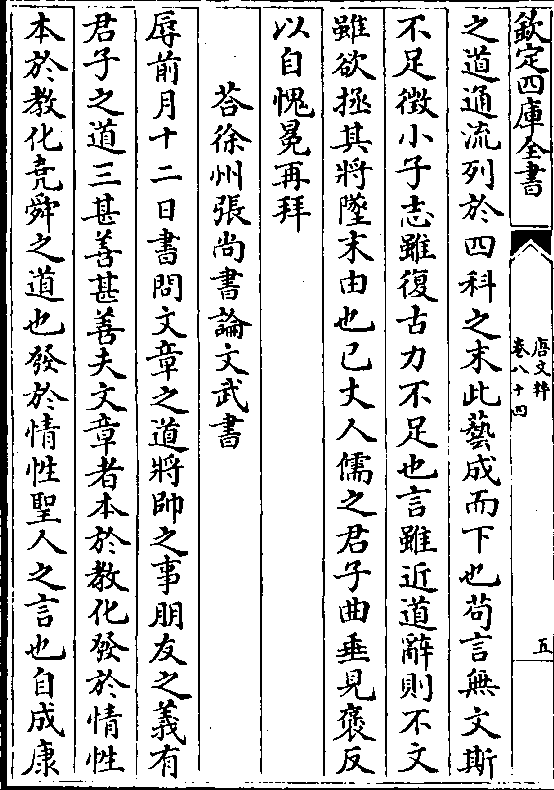 欽定四庫全書
唐文粹
卷八十四
五
之道通流列於四科之末此藝成而下也苟言無文斯
不足徵小子志雖復古力不足也言雖近道辭則不文
雖欲拯其將墜末由也已丈人儒之君子曲垂見褒反
以自愧冕再拜
荅徐州張尚書論文武書
辱前月十二日書問文章之道將帥之事朋友之義有
君子之道三甚善甚善夫文章者本於教化發於情性
本於教化堯舜之道也發於情性聖人之言也自成康